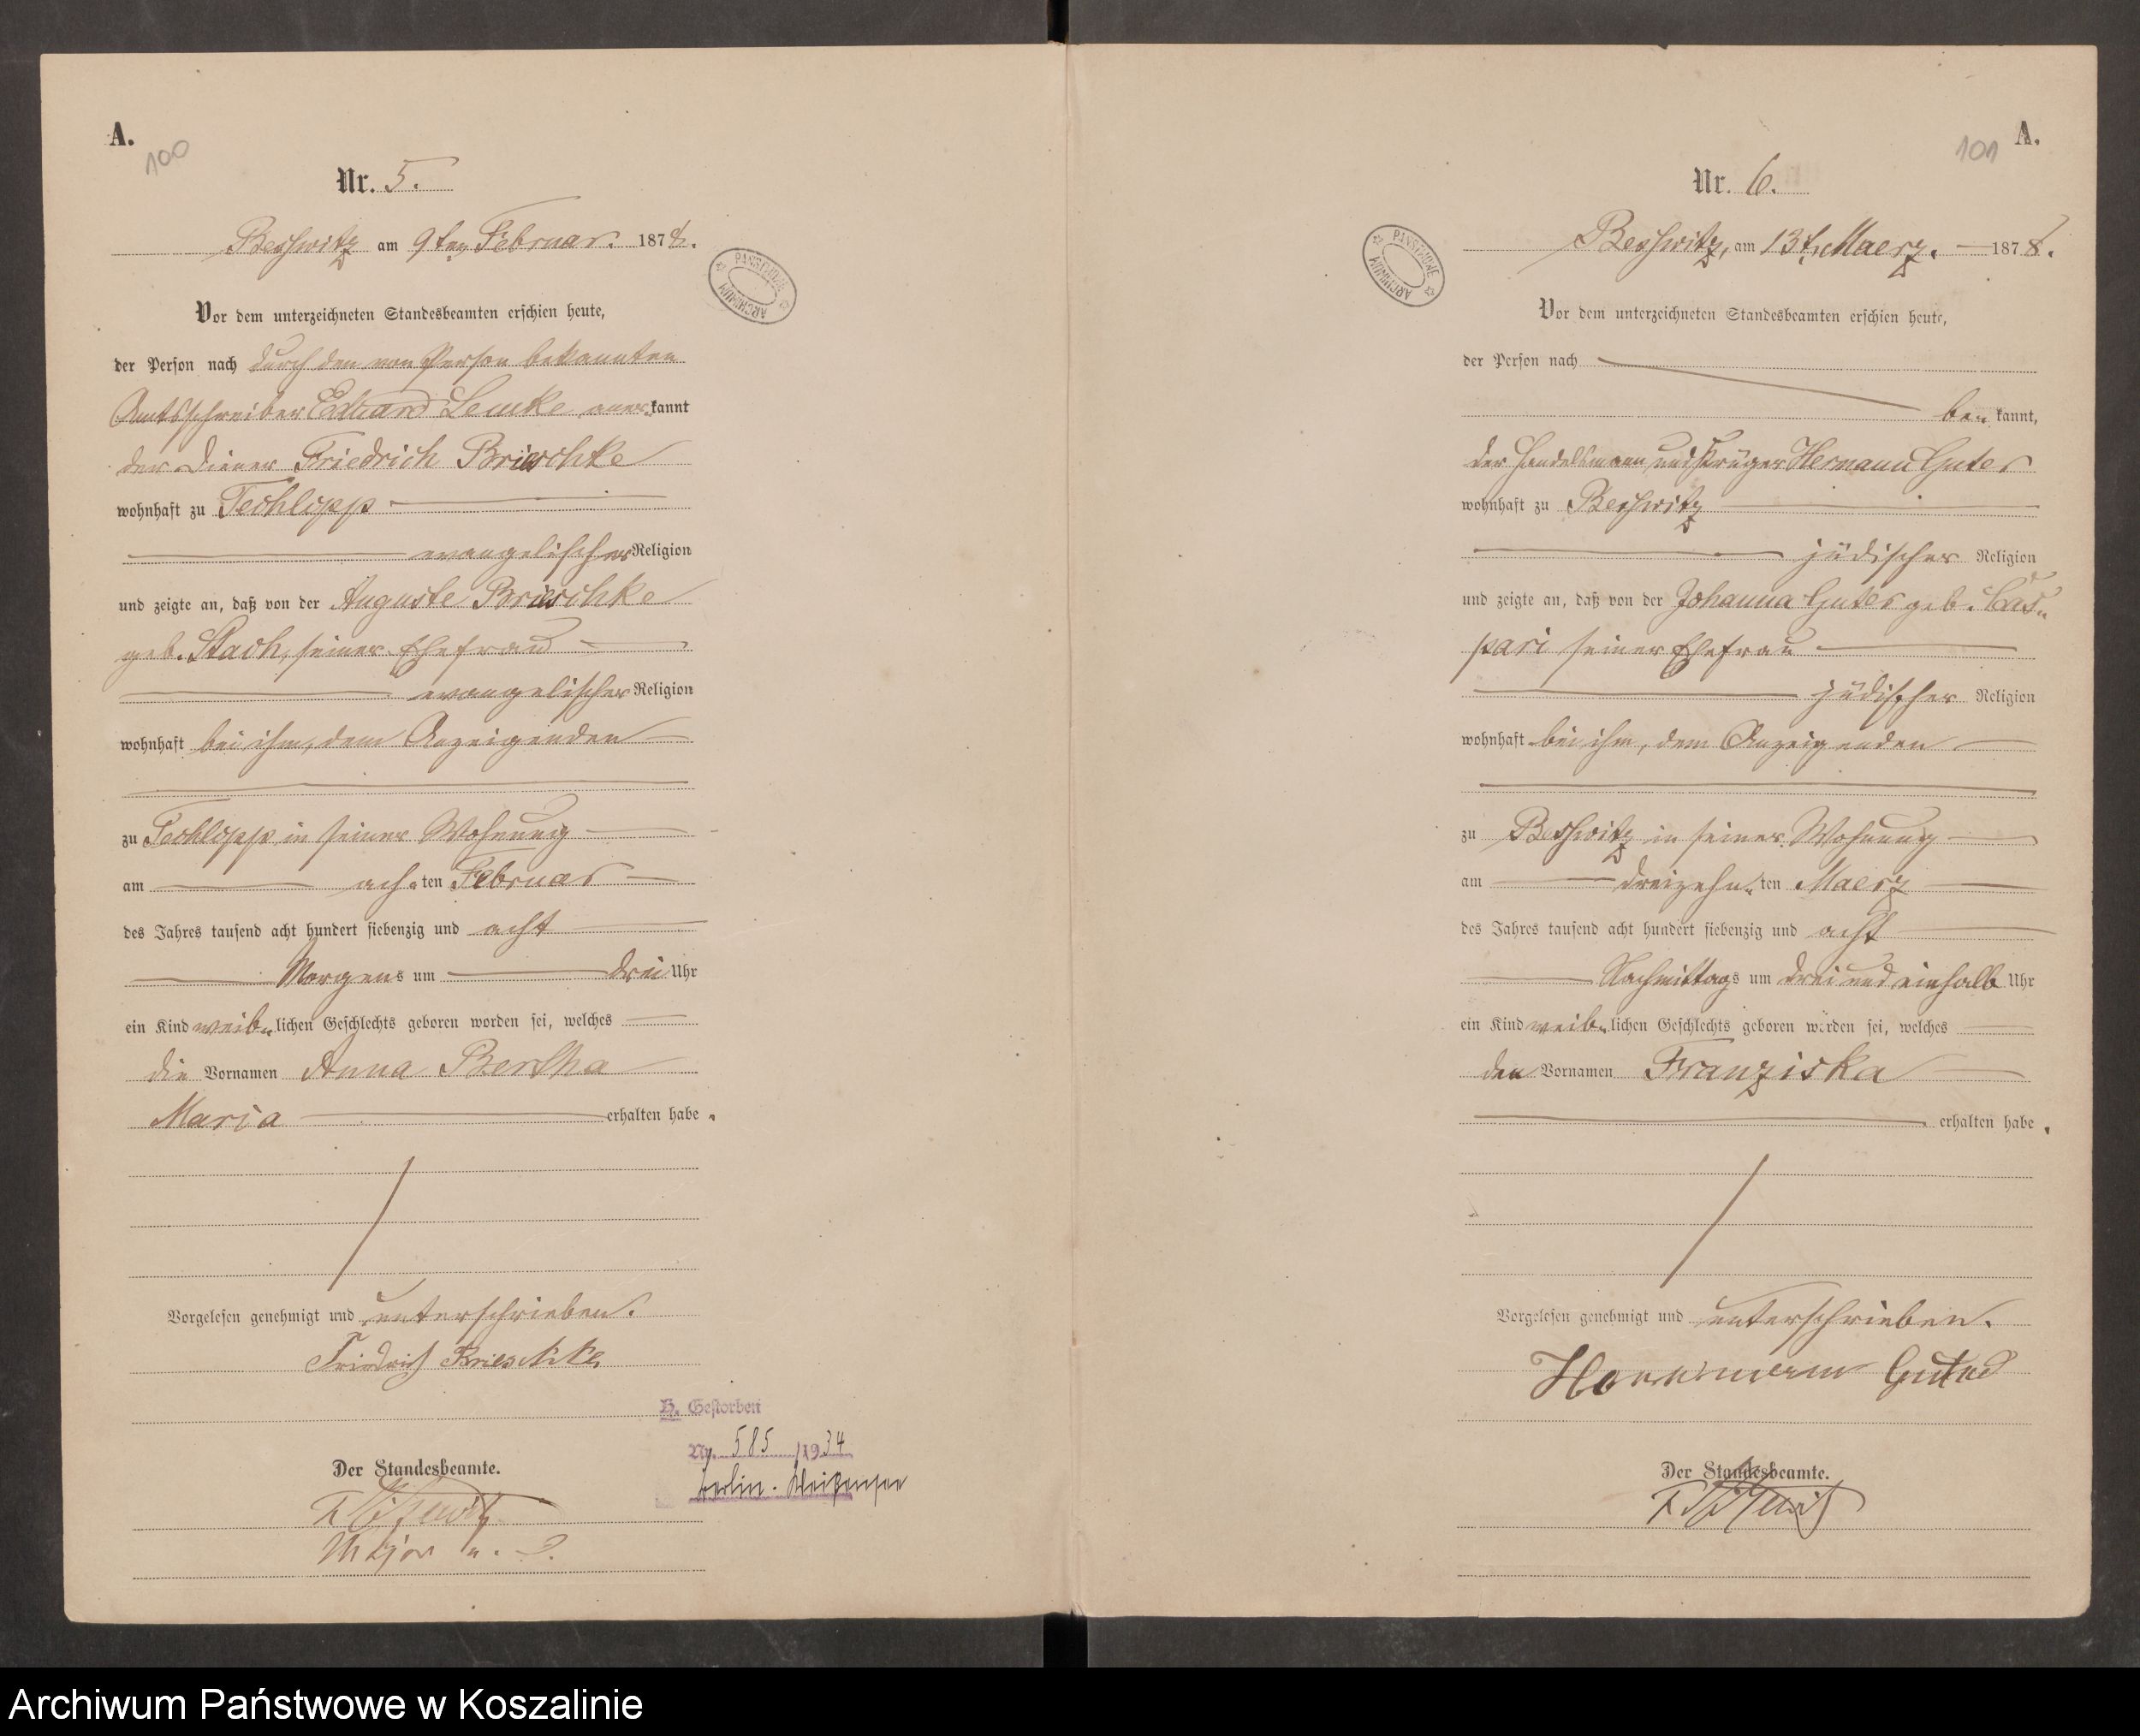 A.
100
Nr. 5.
Beßwitz am 9ten Februar. 1878.
PANSTWOWE ARCHIWUM
Vor dem unterzeichneten Standesbeamten erschien heute,
der Person nach durch den von Person bekannten
Amtsschreiber Eduard Lemke aner„kannt
der Diener Friedrich Brieschke
wohnhaft zu Techlipp
evangelischer Religion
und zeigte an, daß von der Auguste Brieschke
geb. Stach, seiner Ehefrau
evangelischer Religion
wohnhaft bei ihm, dem Anzeigenden
zu Techlipp in seiner Wohnung
am ach„ten Februar
des Jahres tausend acht hundert siebenzig und acht
Morgens um drei Uhr
ein Kind weib„lichen Geschlechts geboren worden sei, welches
die Vornamen Anna Bertha
Maria erhalten habe.
Vorgelesen genehmigt und unterschrieben.
Friedrich Brieschke
H. Gestorben
Nr. 585 /1934
Berlin-Weißensee
Der Standesbeamte.
Major a. D.
A.
101
Nr. 6.
Beßwitz, am 13t. Maerz. 1878.
PANSTWOWE ARCHIWUM
Vor dem unterzeichneten Standesbeamten erschien heute,
der Person nach
be„kannt,
der Handelsmann und Krüger Hermann Guter
wohnhaft zu Beßwitz
jüdischer Religion
und zeigte an, daß von der Johanna Guter geb. Cas„
pari seiner Ehefrau
jüdischer Religion
wohnhaft bei ihm, dem Anzeigenden
zu Beßwitz in seiner Wohnung
am dreizehn„ten Maerz
des Jahres tausend acht hundert siebenzig und acht
Nachmittags um drei und einhalb Uhr
ein Kind weib„lichen Geschlechts geboren worden sei, welches
den Vornamen Franziska
erhalten habe.
Vorgelesen genehmigt und unterschrieben.
Herrmann
Der Standesbeamte.
Archiwum Państwowe w Koszalinie